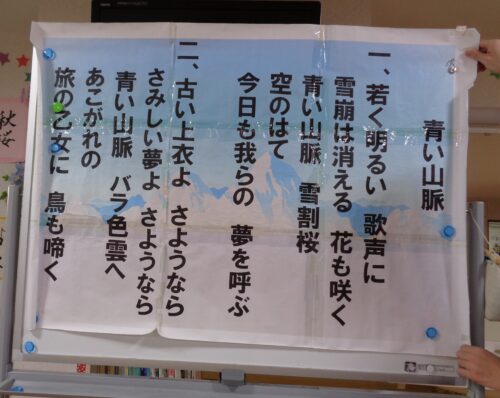 青い山脈
一、若く明るい 歌声に
雪崩は消える 花も咲く
青い山脈 雪割桜
空のはて
今日も我らの 夢を呼ぶ
二、古い上衣よ さようなら
さみしい夢よ さようなら
青い山脈 バラ色雲へ
あこがれの
旅の乙女に 鳥も啼く
秋桜